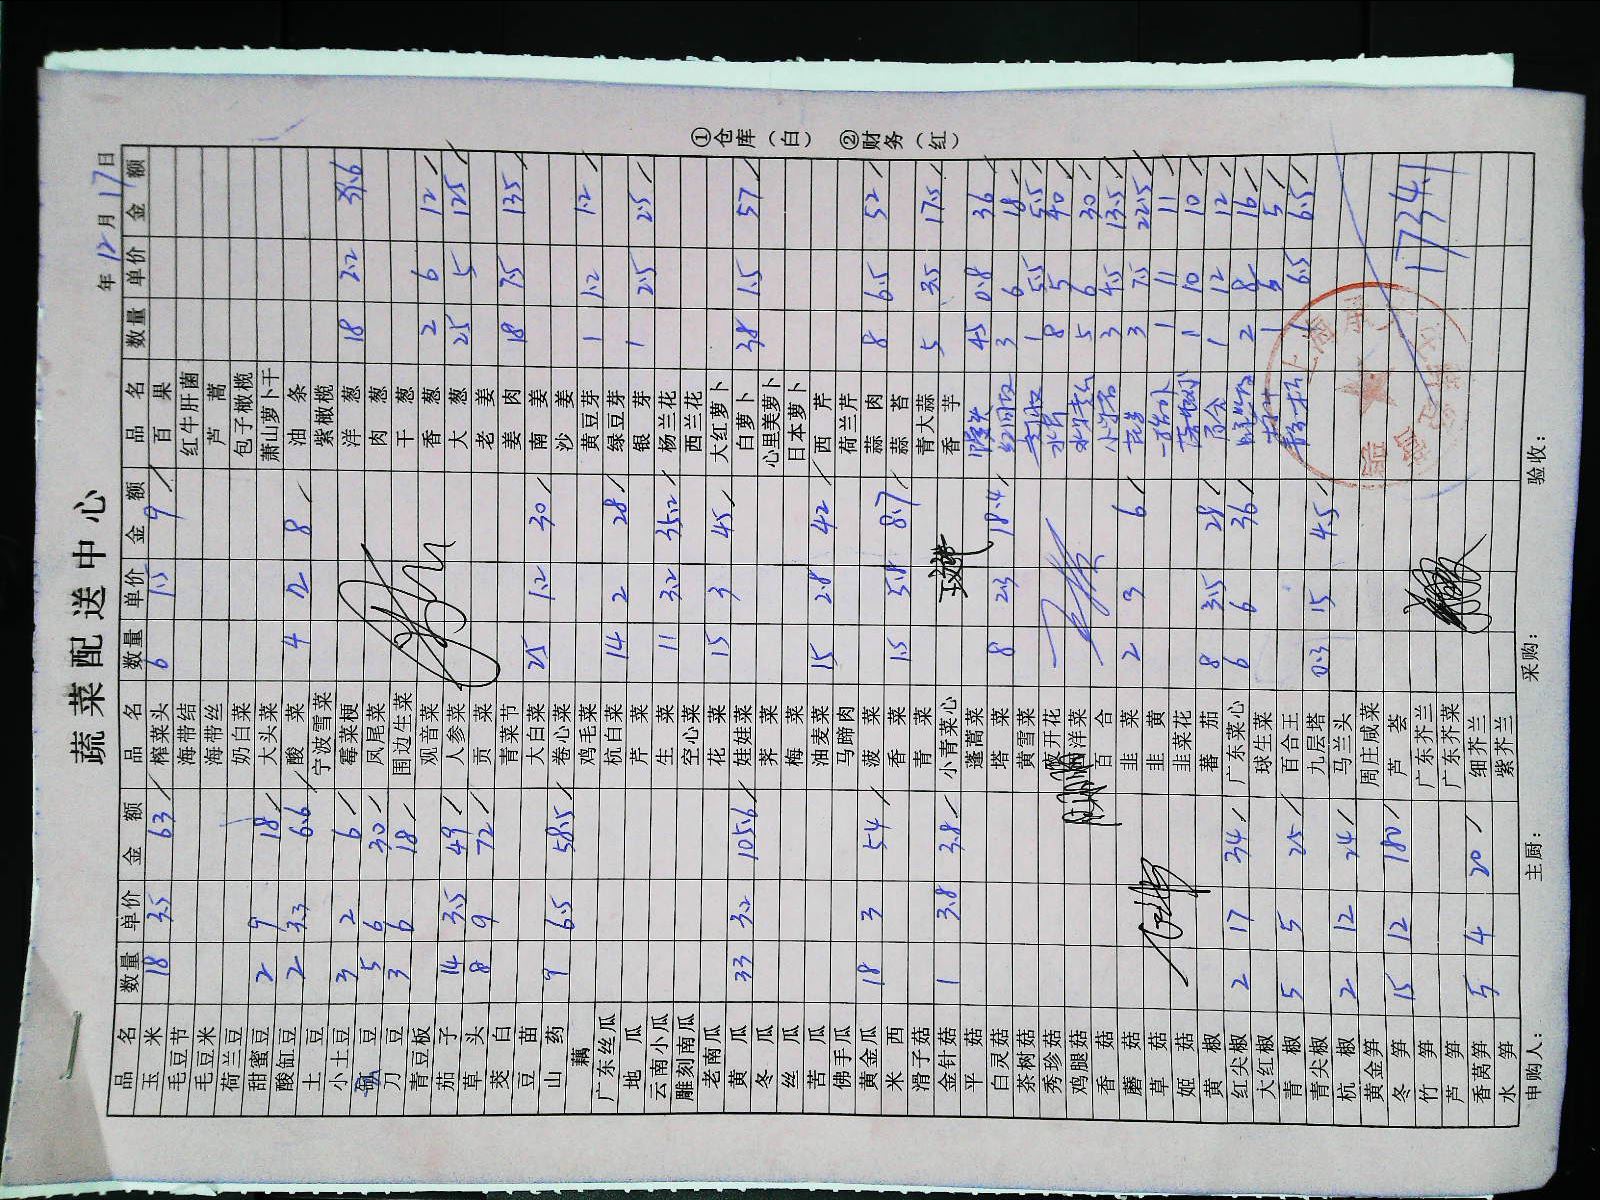 蔬菜配送中心
年 12 月 17 日
品名 数量 单价 金额 品名 数量 单价 金额 品名 数量 单价 金额
玉米 18 3.5 63 榨菜头 6 1.5 9 百果
毛豆节 海带结 红牛肝菌
毛豆米 海带丝 芦蒿
荷兰豆 奶白菜 包子橄榄
甜蜜豆 2 9 18 大头菜 萧山萝卜干
酸缸豆 2 3.3 6.6 酸菜 4 2 8 油条
土豆 宁波雪菜 紫橄榄
小土豆 3 2 6 霉菜梗 洋葱 18 2.2 39.6
豆 5 6 30 凤尾菜 肉葱
刀豆 3 6 18 围边生菜 干葱
青豆板 观音菜 香葱 2 6 12
茄子 14 3.5 49 人参菜 大葱 25 5 125
草头 8 9 72 贡菜 老姜
茭白 青菜节 姜肉 18 7.5 135
豆苗 大白菜 25 1.2 30 南姜
山药 9 6.5 58.5 卷心菜 沙姜
藕 鸡毛菜 黄豆芽 1 1.2 1.2
广东丝瓜 杭白菜 14 2 28 绿豆芽
地瓜 芹菜 银芽 1 2.5 2.5
云南小瓜 生菜 11 3.2 35.2 杨兰花
雕刻南瓜 空心菜 西兰花
老南瓜 花菜 15 3 45 大红萝卜
黄瓜 33 3.2 105.6 娃娃菜 白萝卜 38 1.5 57
冬瓜 荠菜 心里美萝卜
丝瓜 梅菜 日本萝卜
苦瓜 油麦菜 15 2.8 42 西芹
佛手瓜 马蹄肉 荷兰芹
黄金瓜 18 3 54 菠菜 蒜肉 8 6.5 52
米西 香菜 1.5 5.8 8.7 蒜苔
滑子菇 青菜 青大蒜 5 3.5 17.5
金针菇 1 3.8 3.8 小青菜心 香芋
平菇 蓬蒿菜 45 0.8 36
白灵菇 塔菜 8 2.3 18.4 3 6 18
茶树菇 黄雪菜 1 5.5 5.5
秀珍菇 开花 8 5 40
鸡腿菇 洋菜 5 6 30
香菇 百合 3 4.5 13.5
蘑菇 韭菜 2 3 6 3 7.5 22.5
草菇 韭黄 1 11 11
姬菇 韭菜花 1 10 10
黄椒 蕃茄 8 3.5 28 百合 1 12 12
红尖椒 2 17 34 广东菜心 6 6 36 2 8 16
大红椒 球生菜 1 5 5
青椒 5 5 25 百合王 1 6.5 6.5
青尖椒 九层塔 0.3 15 4.5
杭椒 2 12 24 马兰头
黄金笋 周庄咸菜
冬笋 15 12 180 芦荟
竹笋 广东芥兰 1734.1
芦笋 广东芥菜
香莴笋 5 4 20 细芥兰
水笋 紫芥兰
申购人： 主厨： 采购： 验收：
①仓库（白） ②财务（红）